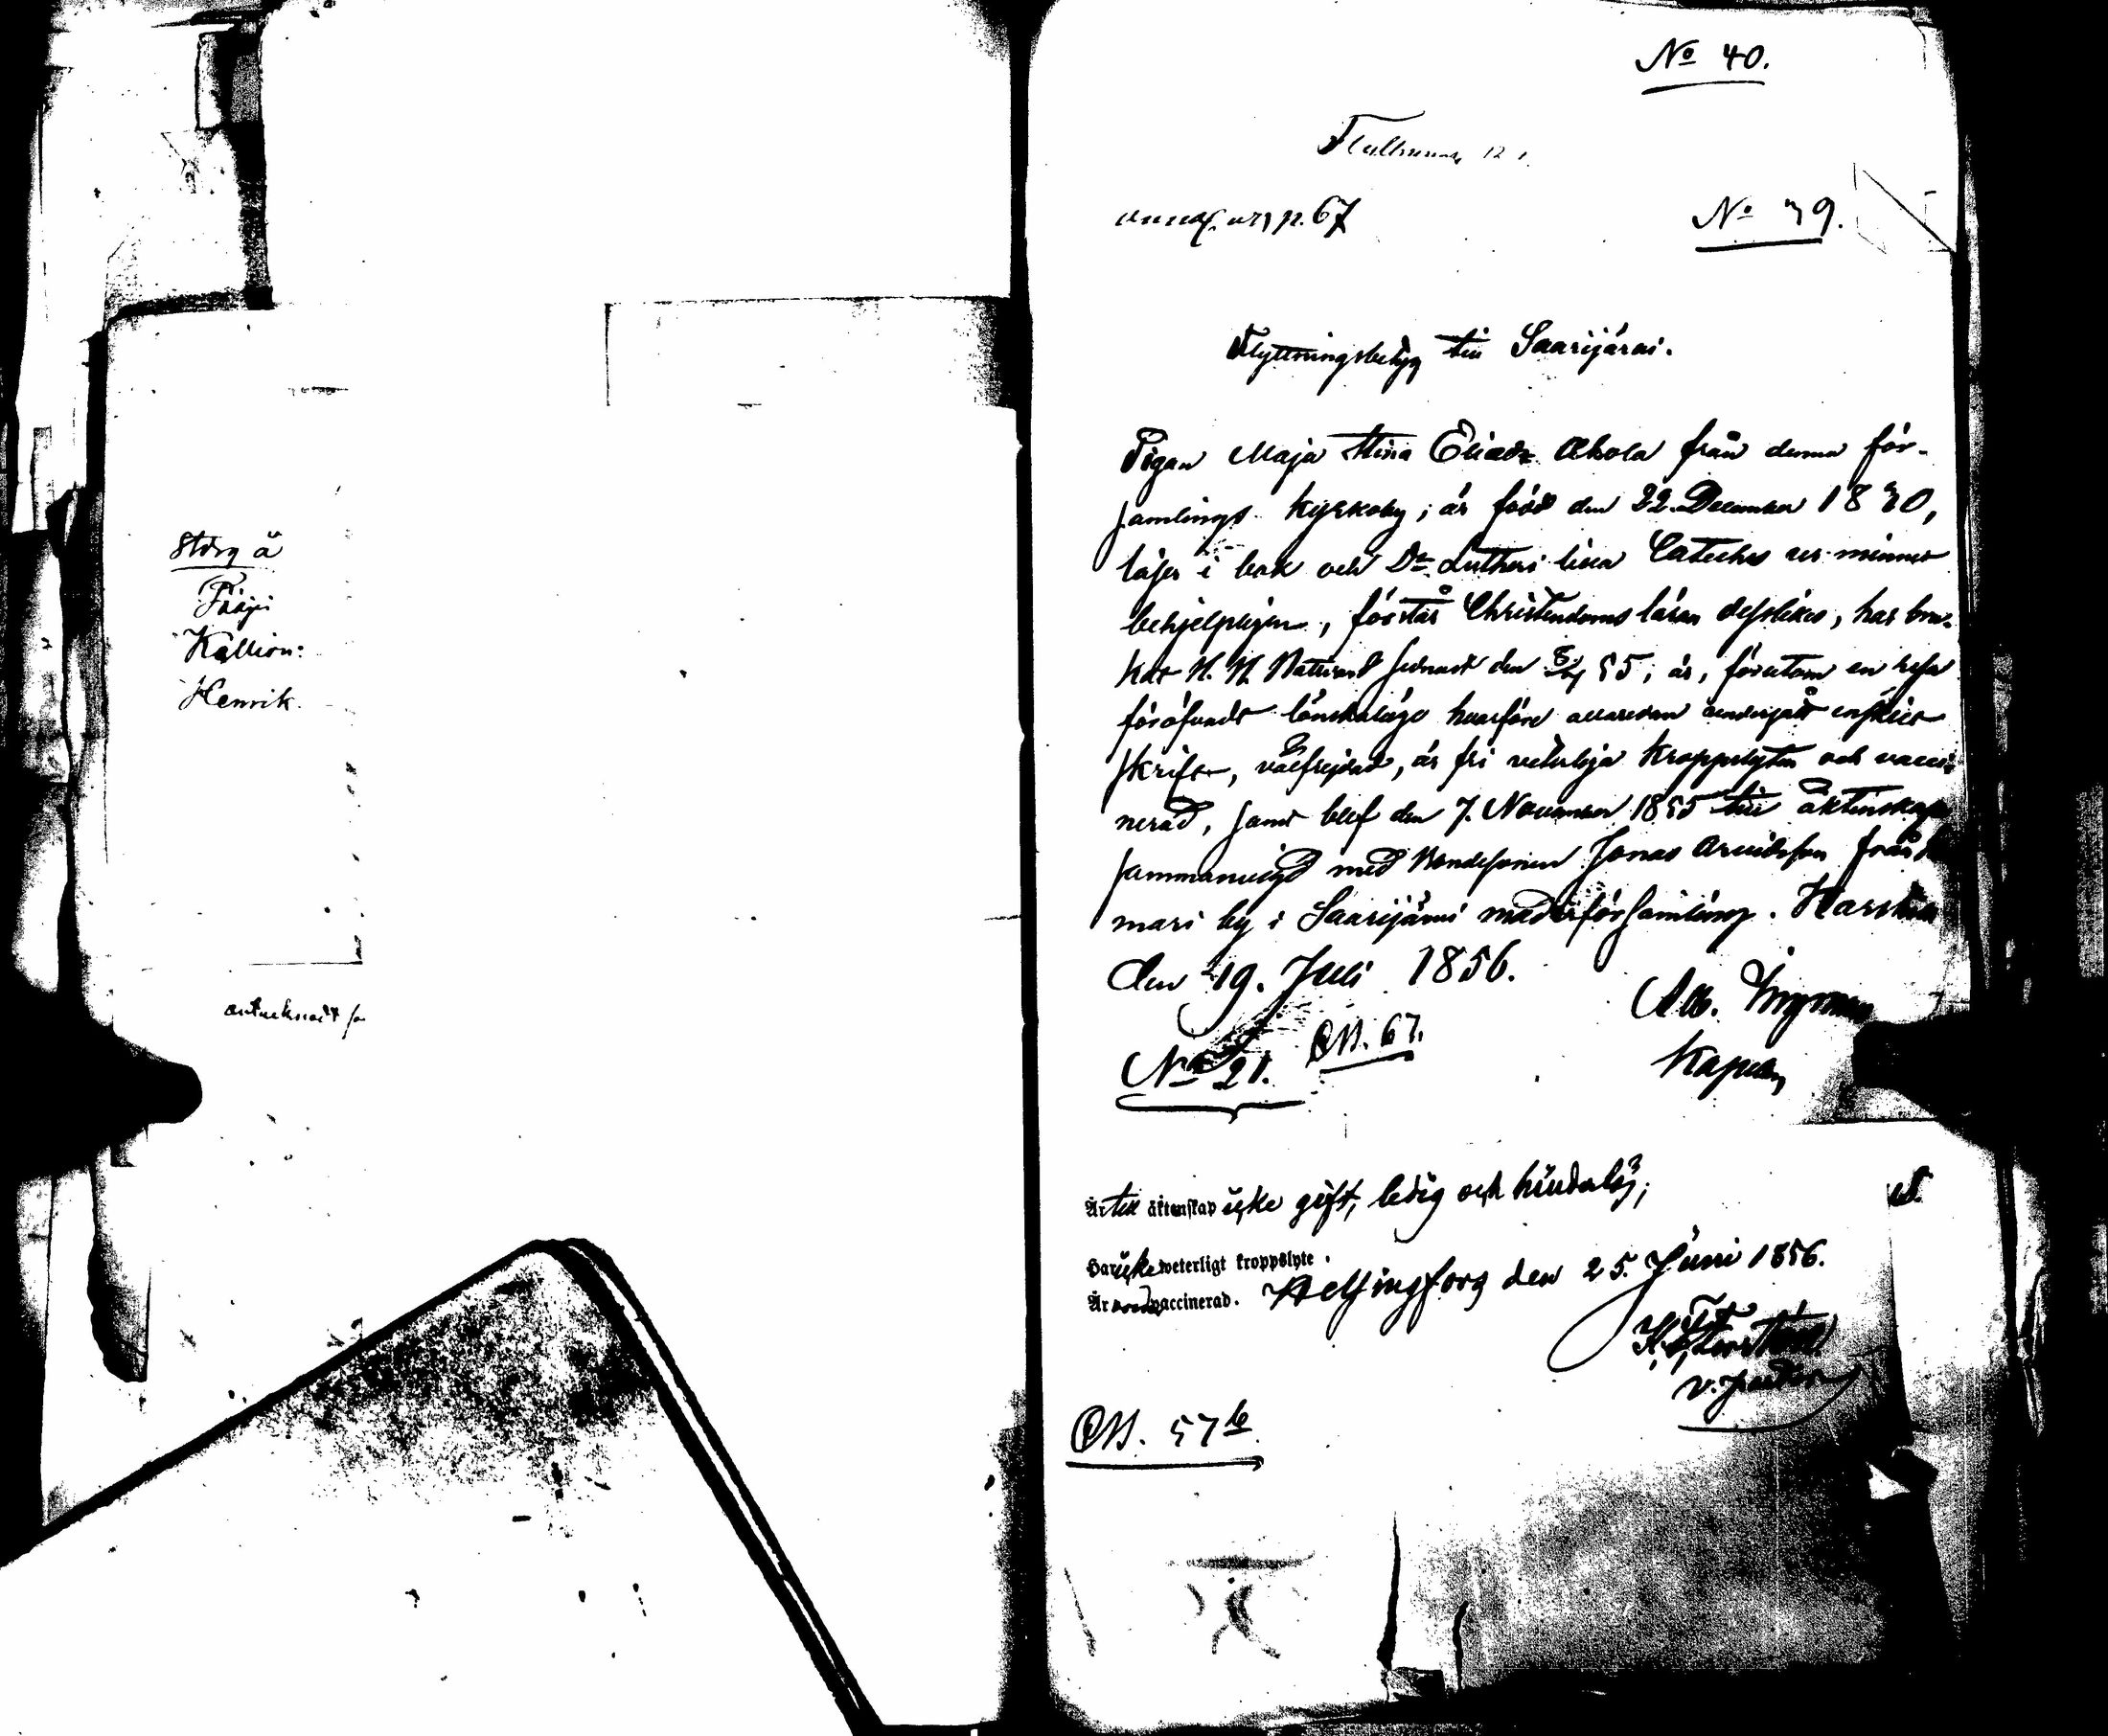 Störg å
Pääjä
Kallion:
Henrik.
No 40.
p. 67
No 39.
Flyttningsbetyg till Saarijärvi.
Pigan Maja Stina Eliasdr Ahola från denna för-
samlings kyrkoby; är född den 22. December 1830,
läser i bok och Dr Lutheri lilla Cateches ur minnet
behjelpligen, förstår Christendoms läran dessliкes, har bru-
kat H. H. Nattvard senast den 55; är, förutom en resa
föröfvadt lönskaläge hvarföre allaredan undergått enskilt
skrift, välfrejdad, är fri veterliga kroppslyten och vacci-
nerad, samt blef den 7. November 1855 till äktenskap
sammanvigd med Bondesonen Jonas Arvidsson från
mari by i Saarijärvi moderförsamling.
den 19. Juli 1856.
Alb.
Kapellan
No 21. CB. 67.
Är till äktenskap icke gift, ledig och hinderlös;
Har icke weterligt kroppslyte.
Är vaccinerad. Helsingfors den 25. Juni 1856.
v. pastor
CB. 57 b.